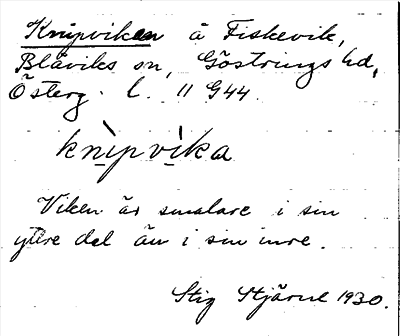 Knipviken å Fiskevik,
Blåviks sn, Göstrings hd,
Österg. l. 11 G44.
knipvika
Viken är smalare i sin
yttre del än i sin inre.
Stig Stjärne 1930.